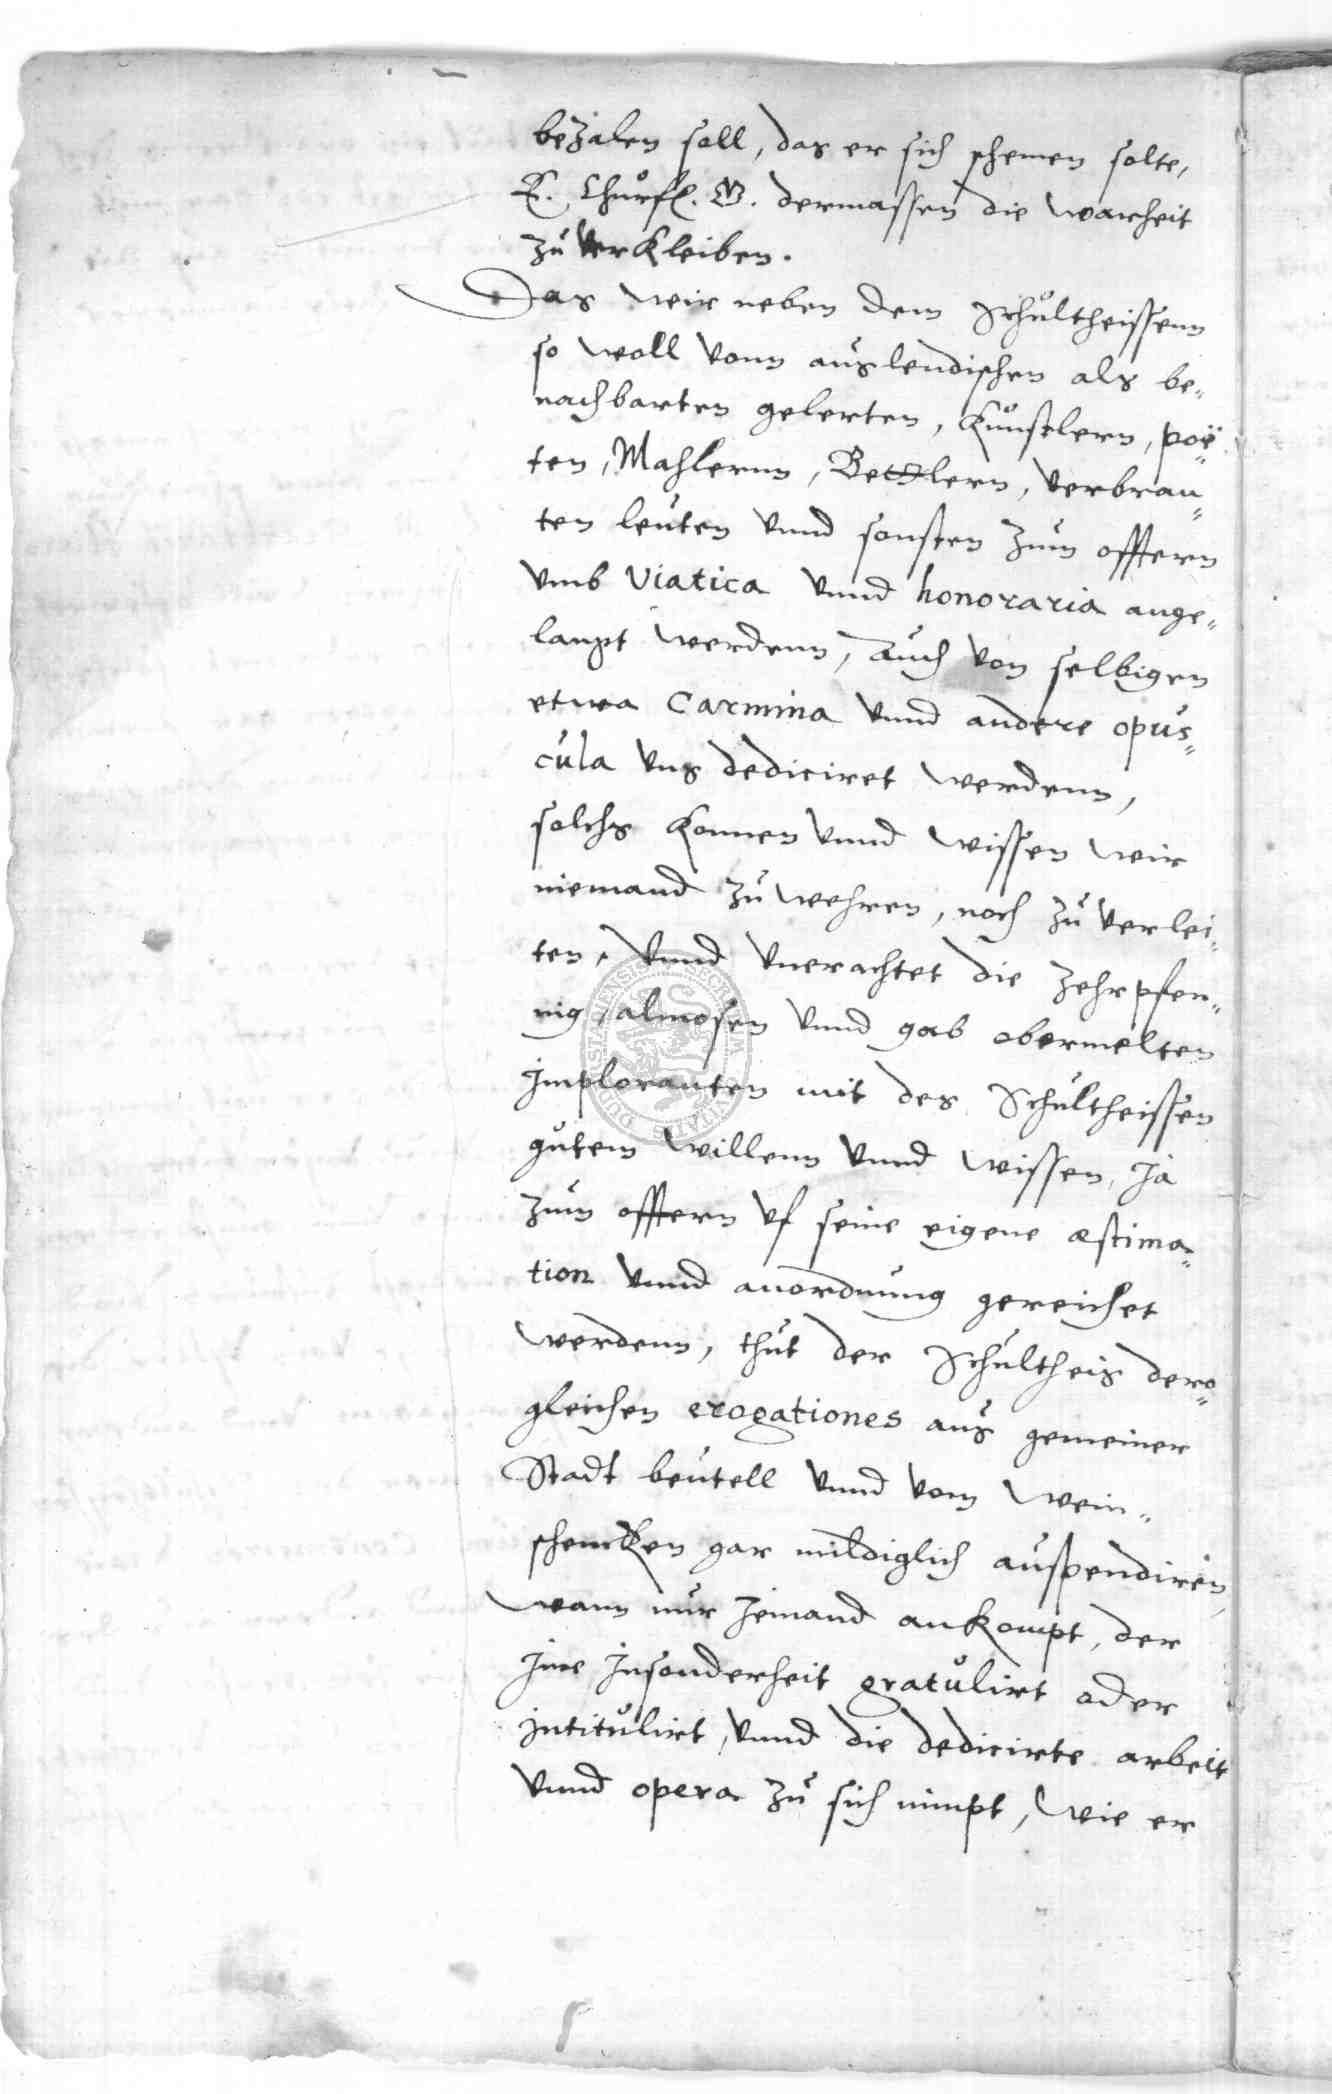 bezalen soll, das er sich schemen solte,
E. Churfl. G. dermassen die warheit
zu verkleiben.
Das wir neben dem Schultheissenn
so woll vonn auslendischen als be„
nachbarten gelerten, Kunstlern, poë„
ten, Mahlernn, Bettlern, verbran„
ten leuten vnnd sonsten zum offtern
vmb Viatica vnnd honoraria ange„
langt werdenn, Auch von selbigen
etwa Carmina vnnd andere opus„
cula vns dediciret werdenn,
solchs konnen vnnd wissen wir
niemand zu wehren, noch zu verlei„
ten, vnnd vnerachtet die zehrpfen„
nig, almosen vnnd gab obermelten
Imploranten mit des Schultheissen
gutem willenn vnnd wissen, Ja
zum offtern vf seine eigene æstima„
tion vnnd anordnung gereichet
werdenn, thut der Schultheis der„
gleichen erogationes aus gemeiner
Stadt beutell vnnd vom Wein„
schencken gar mildiglich auspendiren,
wann nur Jemand ankompt, der
Jme Jnsonderheit gratulirt oder
Jntitulirt, vnnd die dedicirte arbeit
vnnd opera zu sich nimpt, Wie er
SECRETUM CIVITATIS DUDERSTADENSIS